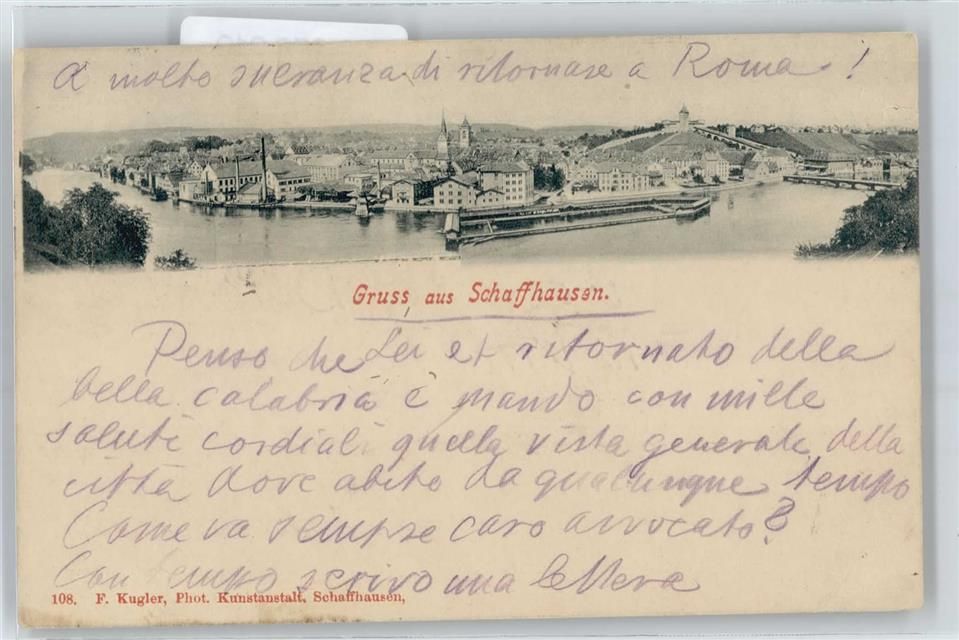 A molto speranza di ritornare a Roma!
Gruss aus Schaffhausen.
Penso che Lei et ritornato della
bella calabria e mando con mille
saluti cordiali quella vista generale della
città dove abito da qualunque tempo
Come va sempre caro avvocato?
Con tempo scrivo una lettera
108. F. Kugler, Phot. Kunstanstalt, Schaffhausen,